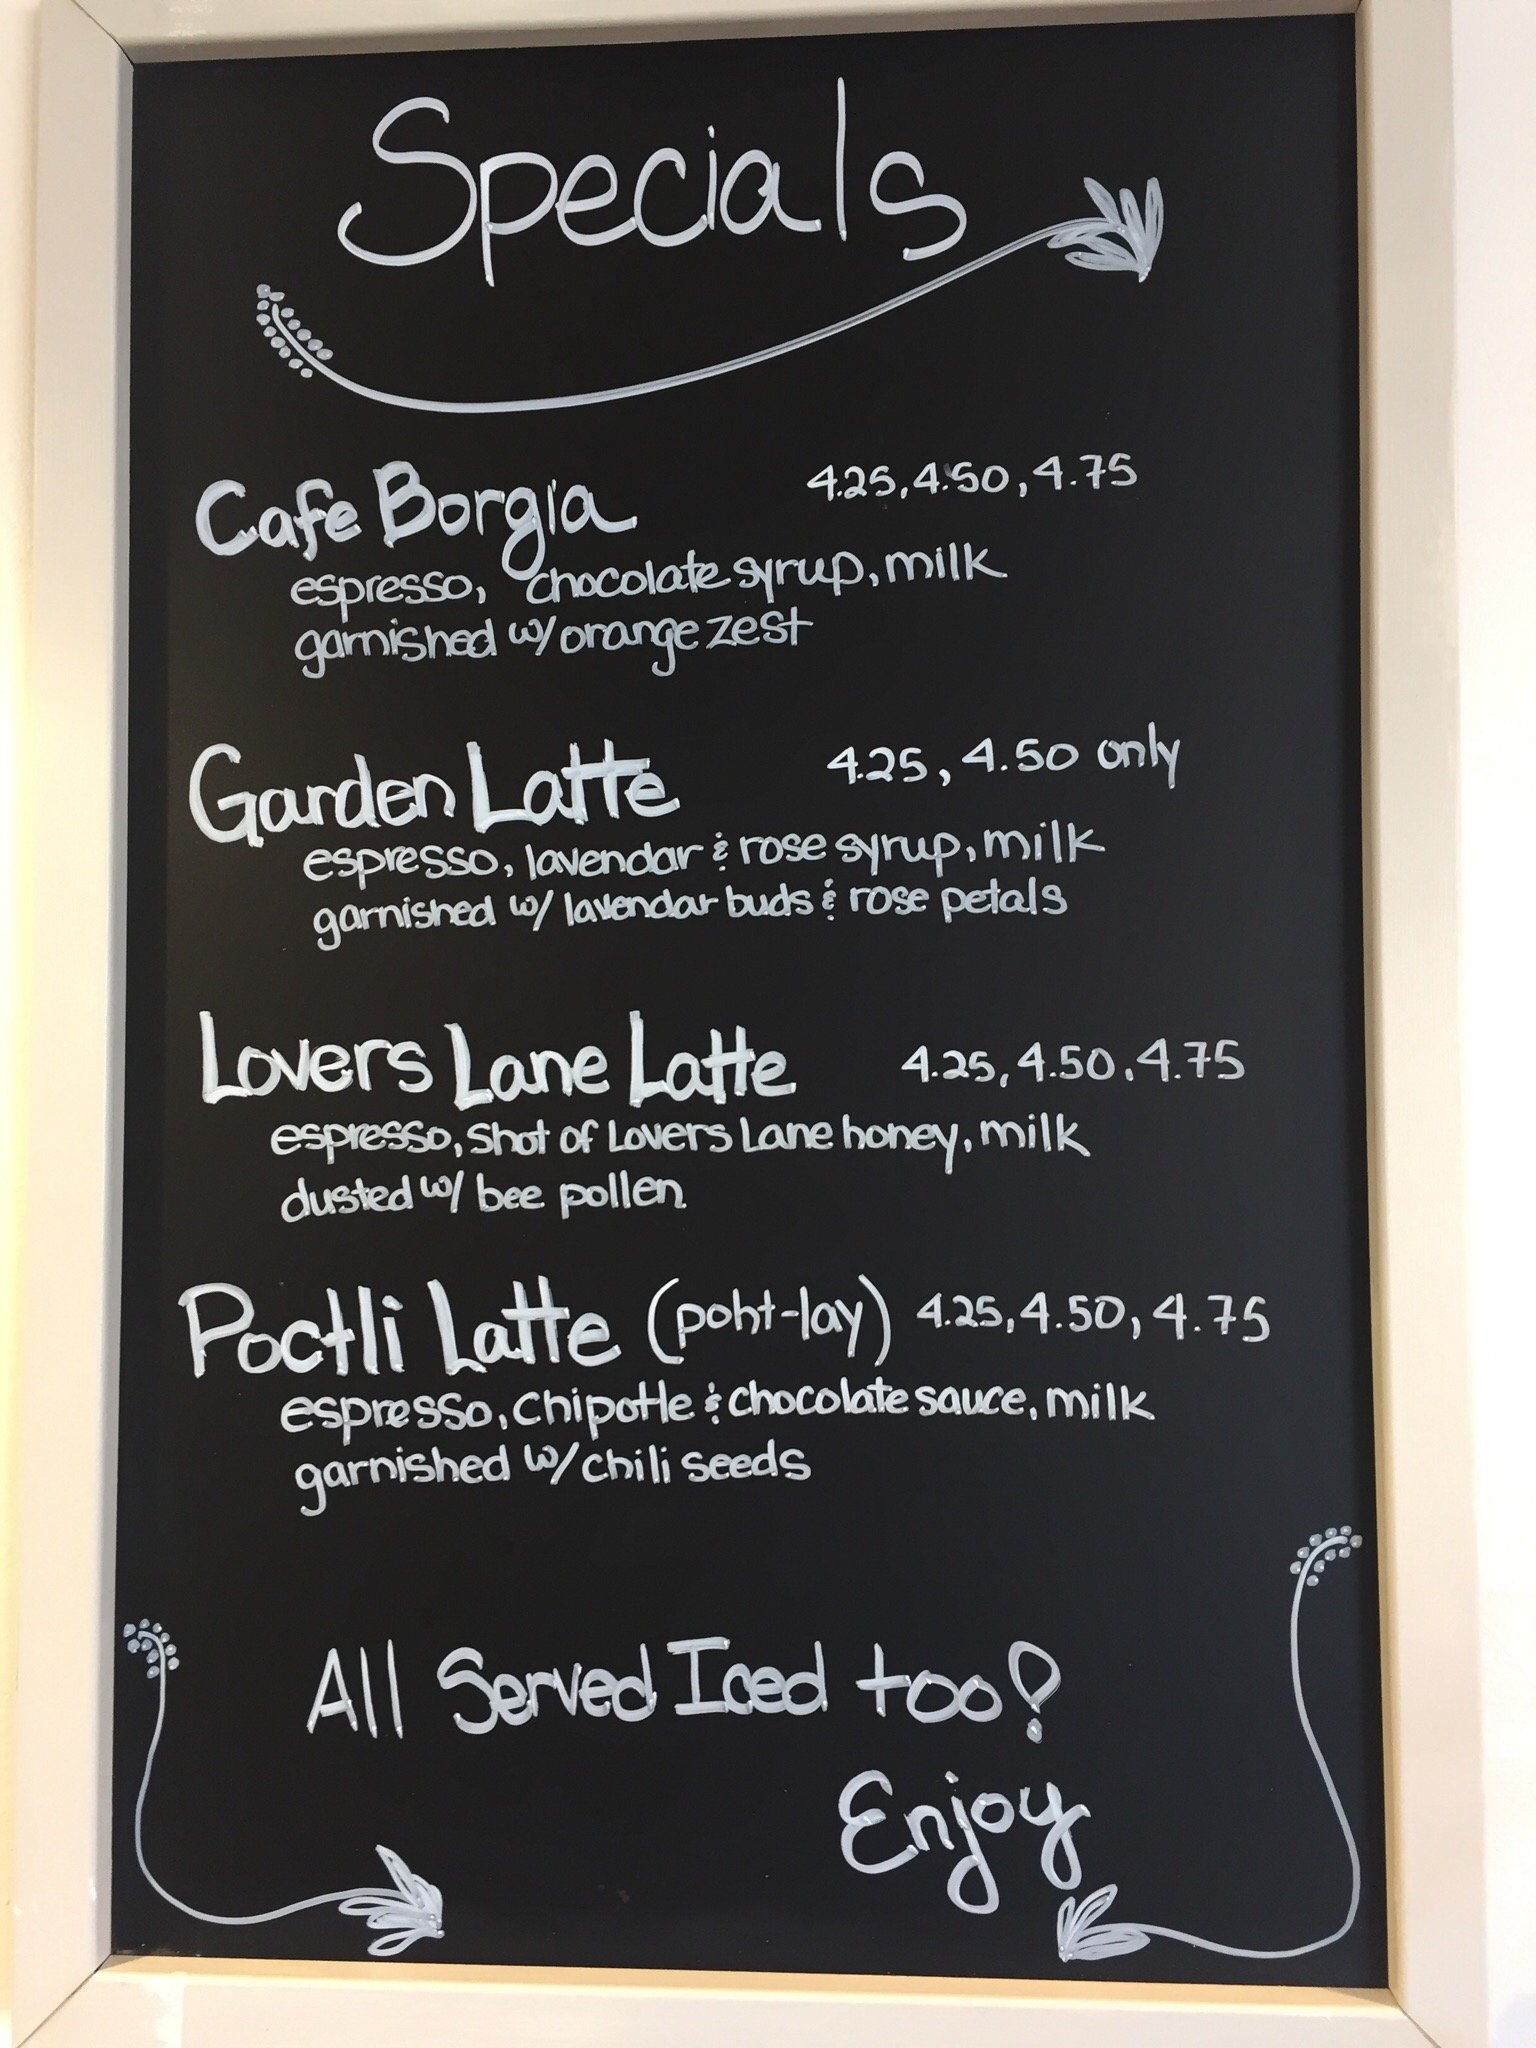 Specials
Cafe Borgia 4.25, 4.50, 4.75
espresso, chocolate syrup, milk
garnished w/ orange zest
Garden Latte 4.25, 4.50 only
espresso, lavendar & rose syrup, milk
garnished w/ lavendar buds & rose petals
Lovers Lane Latte 4.25, 4.50, 4.75
espresso, shot of Lovers Lane honey, milk
dusted w/ bee pollen
Poctli Latte (poht-lay) 4.25, 4.50, 4.75
espresso, chipotle & chocolate sauce, milk
garnished w/ chili seeds
All Served Iced too!
Enjoy